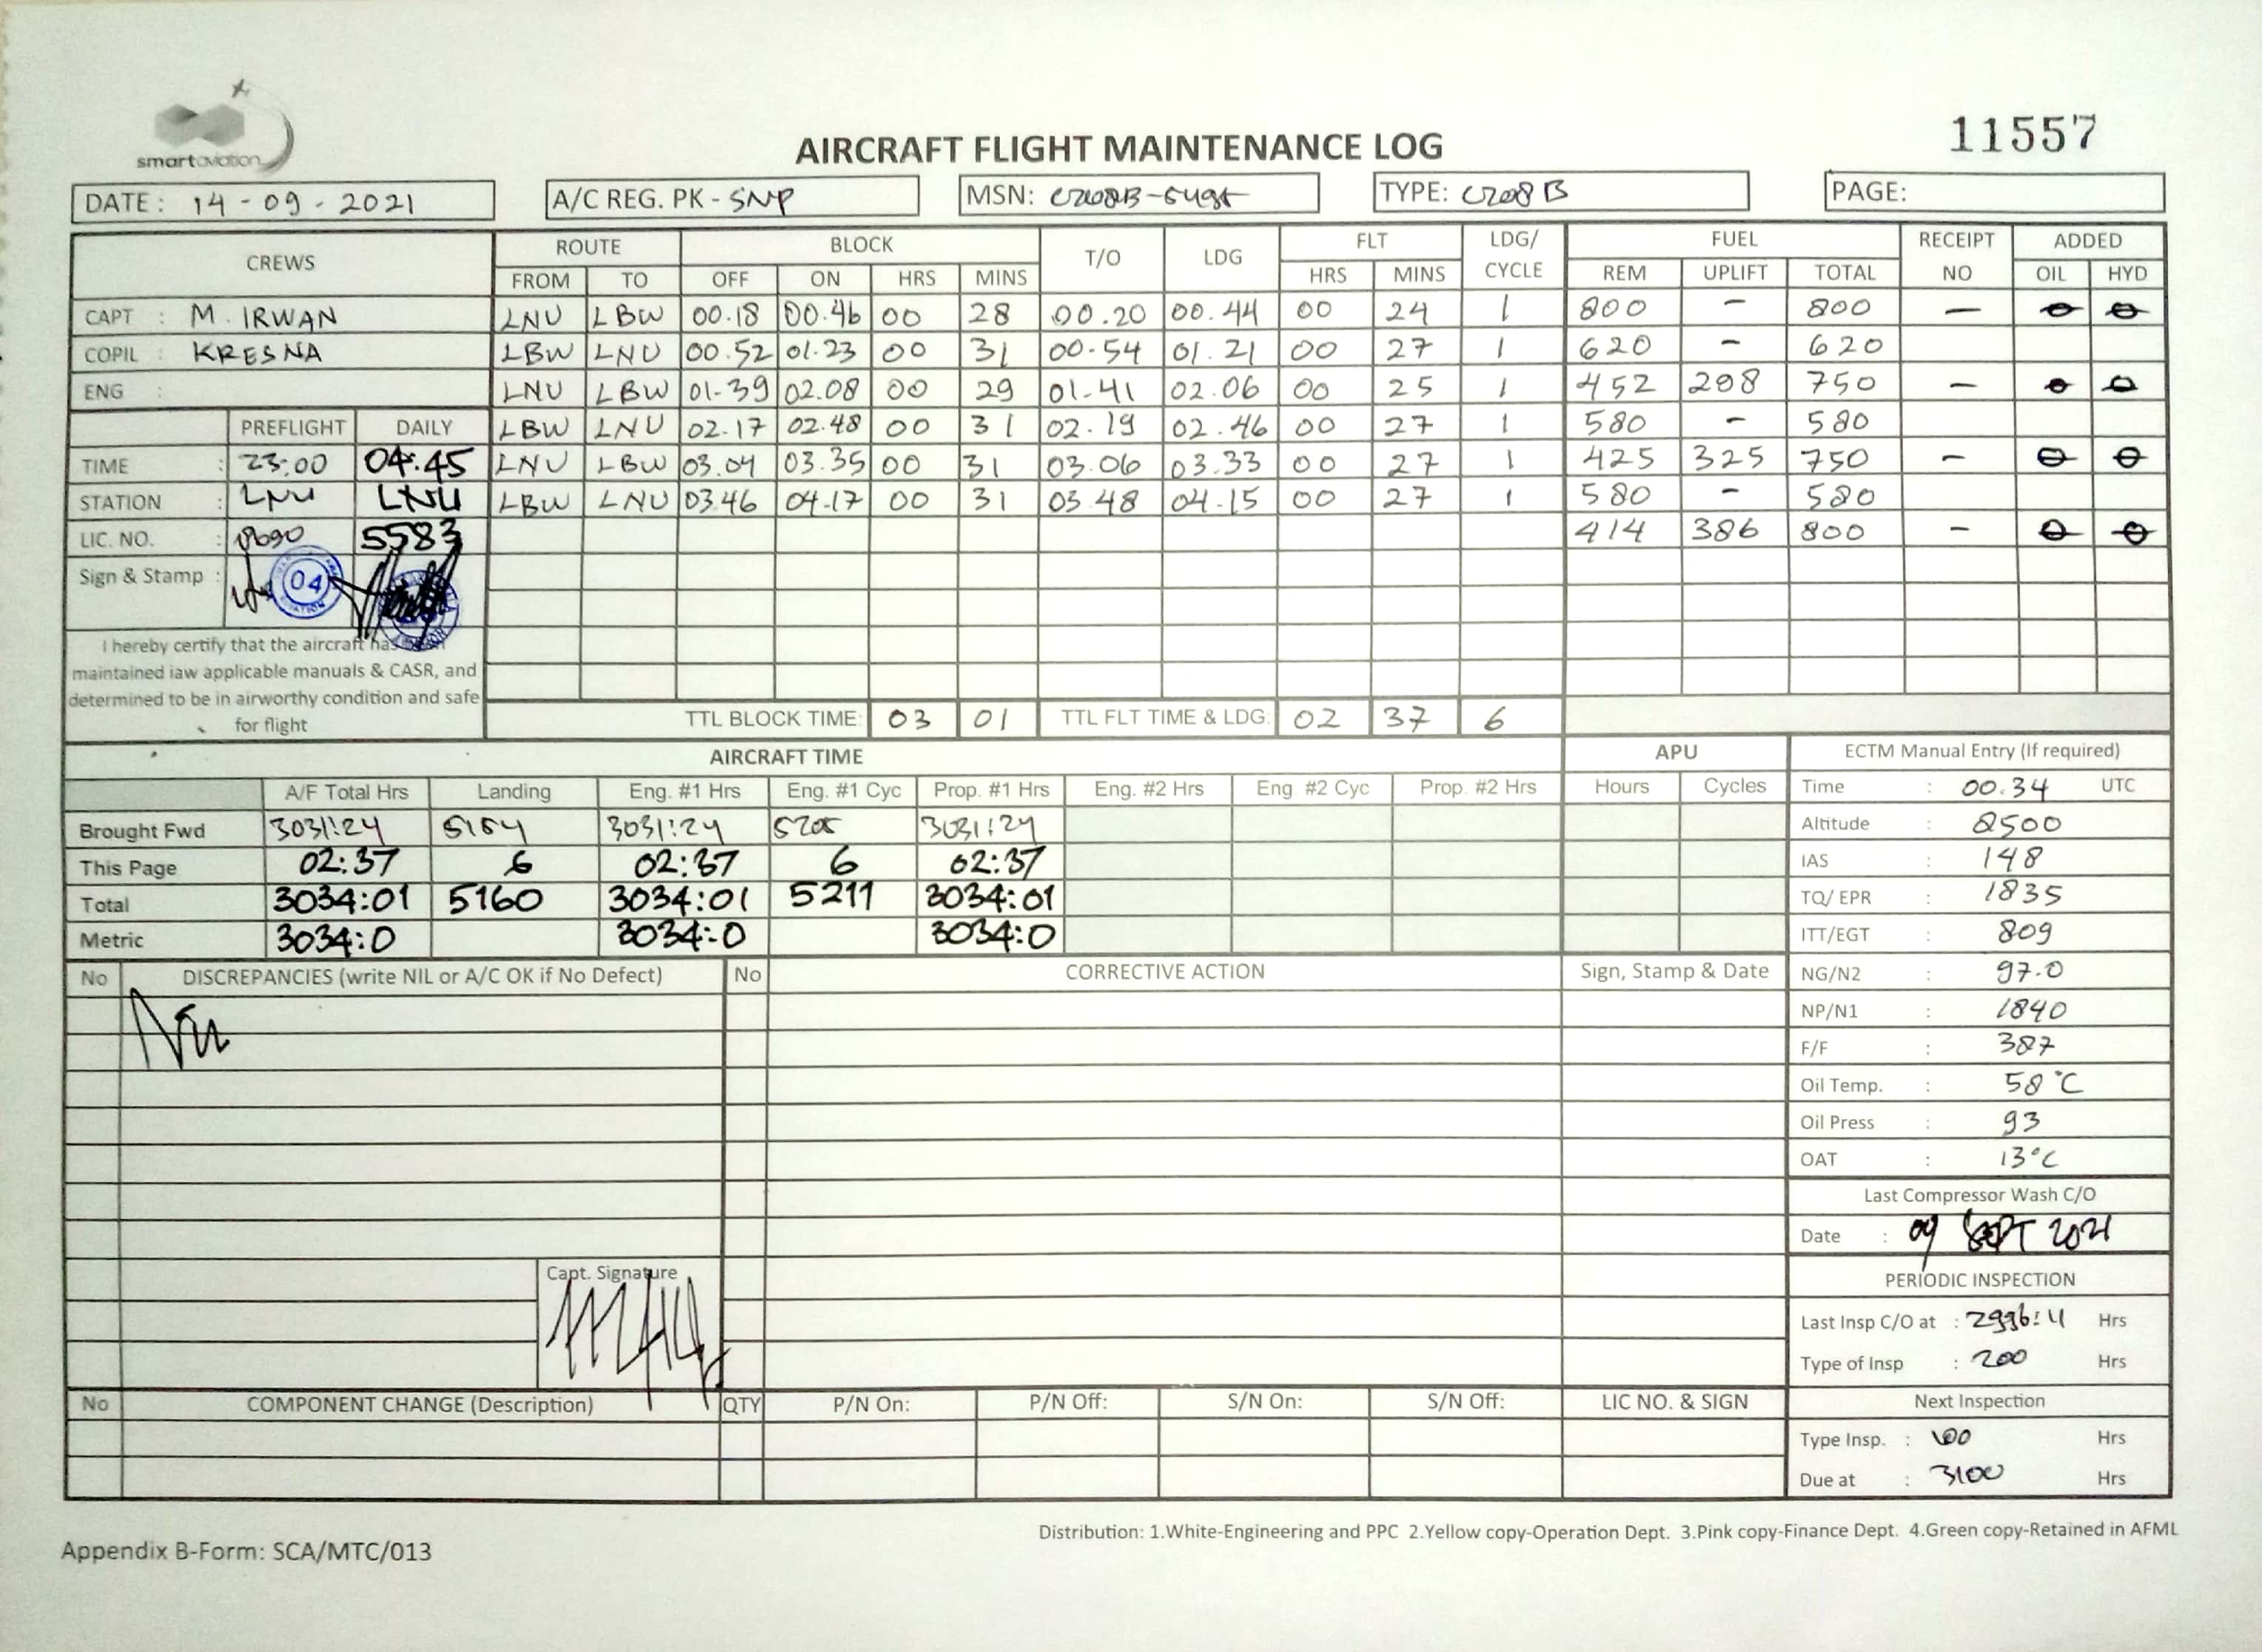 smartaviation
11557
AIRCRAFT FLIGHT MAINTENANCE LOG
DATE : 14 - 09 - 2021 A/C REG. PK - SNP MSN: TYPE: C208B PAGE:
CREWS ROUTE BLOCK T/O LDG FLT LDG/ CYCLE FUEL RECEIPT NO ADDED
FROM TO OFF ON HRS MINS HRS MINS REM UPLIFT TOTAL OIL HYD
CAPT : M. IRWAN LNU LBW 00.18 00.46 00 28 00.20 00.44 00 24 1 800 - 800 -
COPIL : KRESNA LBW LNU 00.52 01.23 00 31 00-54 01.21 00 27 1 620 - 620
ENG : LNU LBW 01-39 02.08 00 29 01-41 02.06 00 25 1 452 298 750 -
PREFLIGHT DAILY LBW LNU 02.17 02.48 00 31 02.19 02.46 00 27 1 580 - 580
TIME : 23:00 04:45 LNU LBW 03.04 03.35 00 31 03.06 03.33 00 27 1 425 325 750 -
STATION : LNU LNU LBW LNU 03.46 04.17 00 31 03.48 04.15 00 27 1 580 - 580
LIC. NO. : 5583 414 386 800 -
Sign & Stamp : 04
I hereby certify that the aircraft has
maintained iaw applicable manuals & CASR, and
determined to be in airworthy condition and safe
for flight
TTL BLOCK TIME: 03 01 TTL FLT TIME & LDG: 02 37 6
AIRCRAFT TIME APU ECTM Manual Entry (If required)
A/F Total Hrs Landing Eng. #1 Hrs Eng. #1 Cyc Prop. #1 Hrs Eng. #2 Hrs Eng. #2 Cyc Prop. #2 Hrs Hours Cycles Time : 00.34 UTC
Brought Fwd 3031:24 5154 3031:24 5205 3031:24 Altitude : 8500
This Page 02:37 6 02:37 6 02:37 IAS : 148
Total 3034:01 5160 3034:01 5211 3034:01 TQ/ EPR : 1835
Metric 3034:0 3034:0 3034:0 ITT/EGT : 809
No DISCREPANCIES (write NIL or A/C OK if No Defect) No CORRECTIVE ACTION Sign, Stamp & Date NG/N2 : 97.0
Nil NP/N1 : 1840
F/F : 387
Oil Temp. : 58°C
Oil Press : 93
OAT : 13°C
Last Compressor Wash C/O
Date : 09 SEPT 2021
Capt. Signature
PERIODIC INSPECTION
Last Insp C/O at : 2996:4 Hrs
Type of Insp : 200 Hrs
No COMPONENT CHANGE (Description) QTY P/N On: P/N Off: S/N On: S/N Off: LIC NO. & SIGN Next Inspection
Type Insp. : 100 Hrs
Due at : 3100 Hrs
Distribution: 1.White-Engineering and PPC 2.Yellow copy-Operation Dept. 3.Pink copy-Finance Dept. 4.Green copy-Retained in AFML
Appendix B-Form: SCA/MTC/013